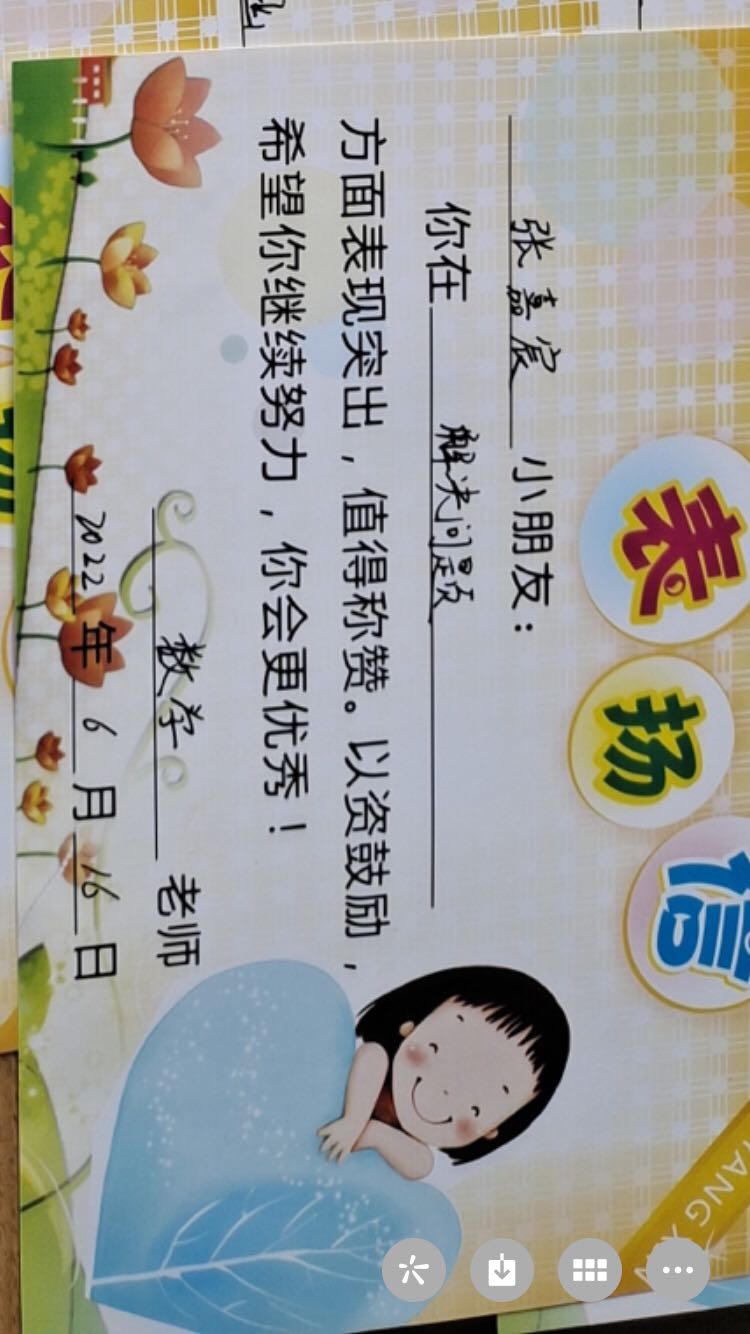 表扬信
张嘉宸 小朋友：
你在 解决问题
方面表现突出，值得称赞。以资鼓励，
希望你继续努力，你会更优秀！
数学 老师
2022年6月16日